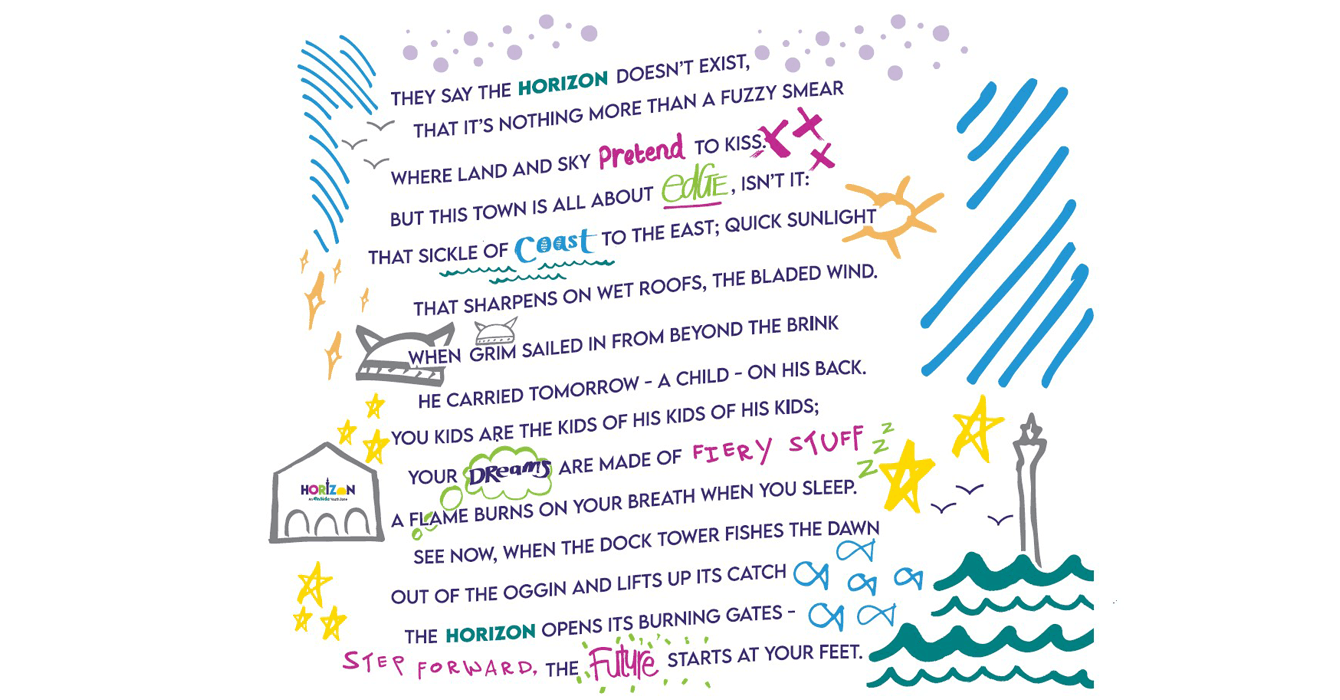 THEY SAY THE HORIZON DOESN'T EXIST,
THAT IT'S NOTHING MORE THAN A FUZZY SMEAR
WHERE LAND AND SKY Pretend TO KISS.
BUT THIS TOWN IS ALL ABOUT edGE, ISN'T IT:
THAT SICKLE OF Coast TO THE EAST; QUICK SUNLIGHT
THAT SHARPENS ON WET ROOFS, THE BLADED WIND.
WHEN GRIM SAILED IN FROM BEYOND THE BRINK
HE CARRIED TOMORROW - A CHILD - ON HIS BACK.
YOU KIDS ARE THE KIDS OF HIS KIDS OF HIS KIDS;
YOUR DReams ARE MADE OF FIERY STUFF
z z z
A FLAME BURNS ON YOUR BREATH WHEN YOU SLEEP.
HORIZON
SEE NOW, WHEN THE DOCK TOWER FISHES THE DAWN
OUT OF THE OGGIN AND LIFTS UP ITS CATCH
THE HORIZON OPENS ITS BURNING GATES -
STEP FORWARD, THE Future STARTS AT YOUR FEET.